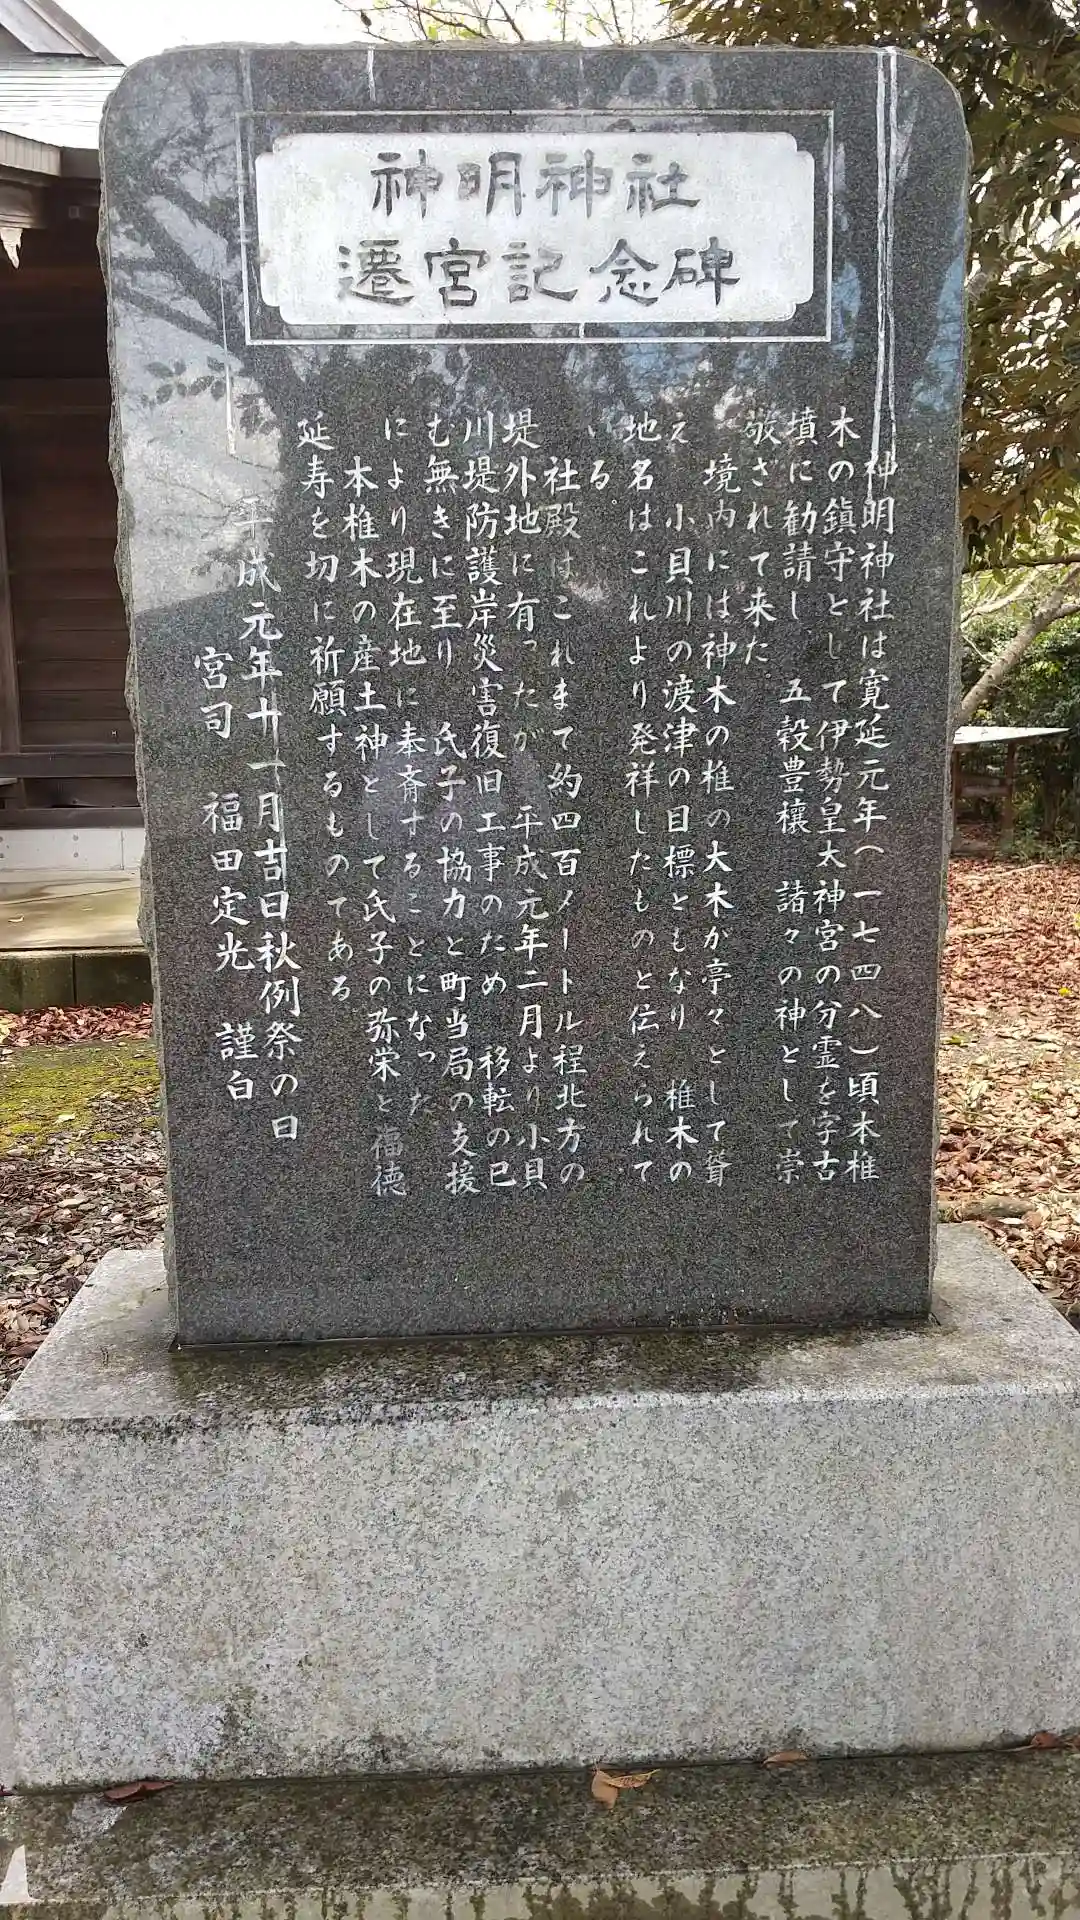 神明神社
遷宮記念碑
神明神社は寛延元年(一七四八)頃本椎
木の鎭守として伊勢皇太神宮の分霊を字古
墳に勧請し 五穀豊穰 諸々の神として崇
敬されて来た
境内には神木の椎の大木が亭々として聳
え 小貝川の渡津の目標ともなり 椎木の
地名はこれより発祥したものと伝えられて
いる。
社殿はこれまで約四百メートル程北方の
堤外地に有ったが 平成元年二月より小貝
川堤防護岸災害復旧工事のため 移転の已
む無きに至り 氏子の協力と町当局の支援
により現在地に奉斎することになった
本椎木の産土神として氏子の弥栄と福徳
延寿を切に祈願するものである
平成元年十一月吉日秋例祭の日
宮司 福田定光 謹白